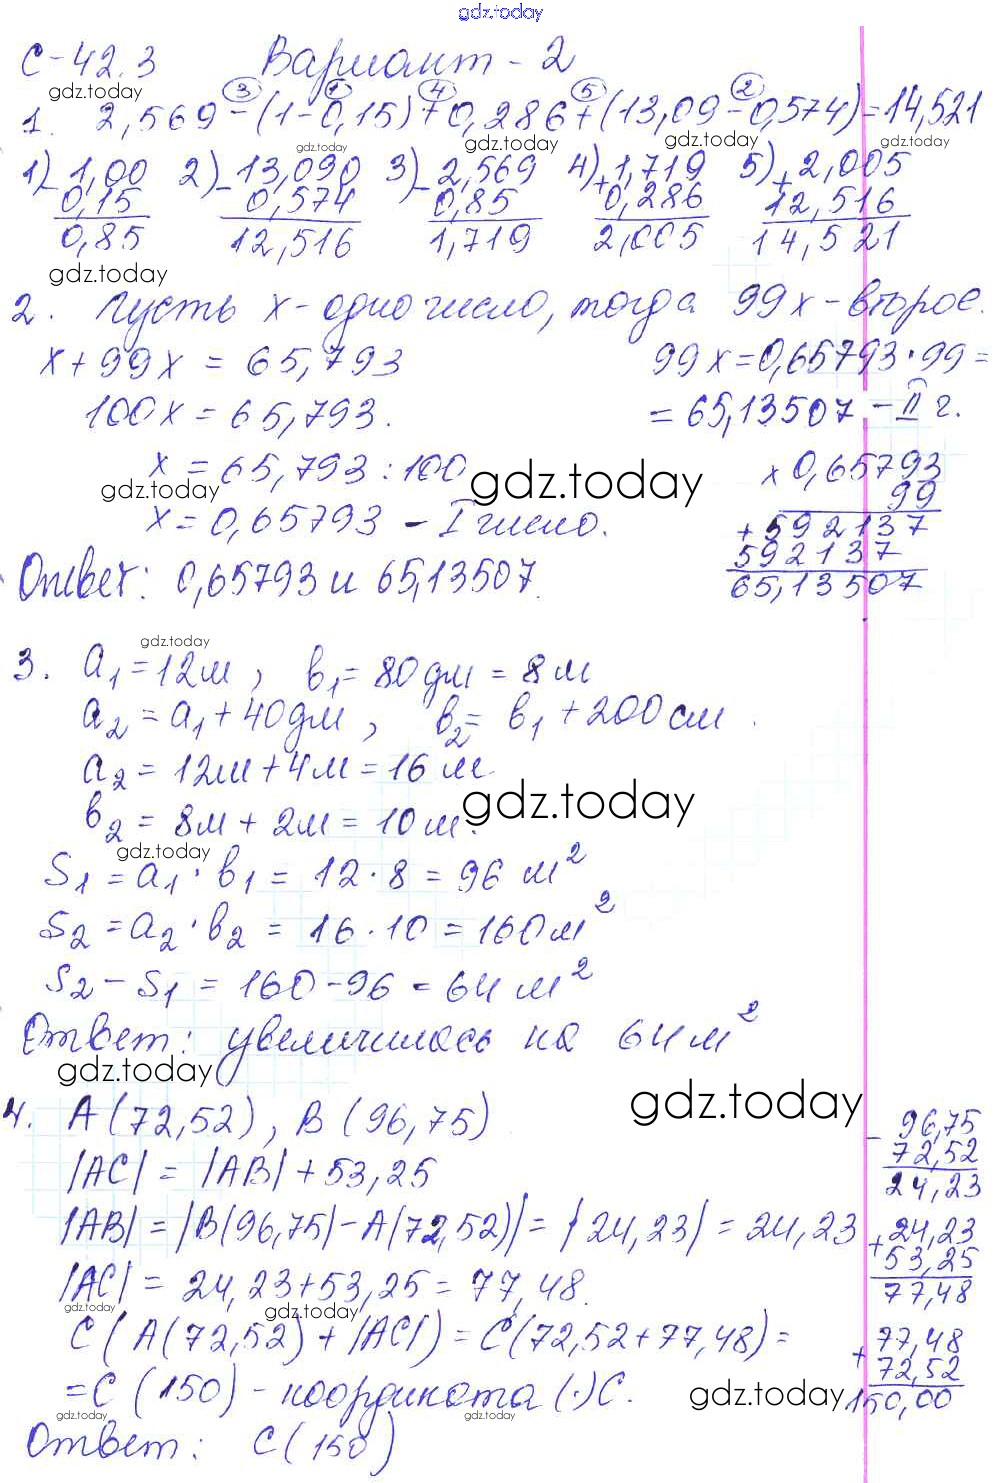 gdz.today
С-42.3 Вариант - 2
gdz.today
③ ① ④ ⑤ ②
1. 2,569 - (1 - 0,15) + 0,286 + (13,09 - 0,574) = 14,521
gdz.today gdz.today gdz.today
1) 1,00 2) 13,090 3) 2,569 4) 1,719 5) 2,005
- 0,15 - 0,574 - 0,85 + 0,286 + 12,516
0,85 12,516 1,719 2,005 14,521
gdz.today
2. Пусть x - одно число, тогда 99x - второе.
x + 99x = 65,793 99x = 0,65793 · 99 =
100x = 65,793. = 65,13507 - II ч.
x = 65,793 : 100 x 0,65793
gdz.today gdz.today 99
x = 0,65793 - I число. + 592137
592137
Ответ: 0,65793 и 65,13507. 65,13507
gdz.today
3. a₁ = 12м, b₁ = 80дм = 8м
a₂ = a₁ + 40дм, b₂ = b₁ + 200см.
a₂ = 12м + 4м = 16м
gdz.today
b₂ = 8м + 2м = 10м.
gdz.today
S₁ = a₁ · b₁ = 12 · 8 = 96 м²
S₂ = a₂ · b₂ = 16 · 10 = 160м²
S₂ - S₁ = 160 - 96 = 64 м²
Ответ: увеличилась на 64м²
gdz.today
gdz.today
4. A(72,52), B(96,75) - 96,75
72,52
|AC| = |AB| + 53,25 24,23
|AB| = |B(96,75) - A(72,52)| = |24,23| = 24,23 + 24,23
53,25
|AC| = 24,23 + 53,25 = 77,48. 77,48
gdz.today gdz.today
C(A(72,52) + |AC|) = C(72,52 + 77,48) = + 77,48
72,52
= C(150) - координата (·) C. 150,00
gdz.today
gdz.today gdz.today
Ответ: C(150)